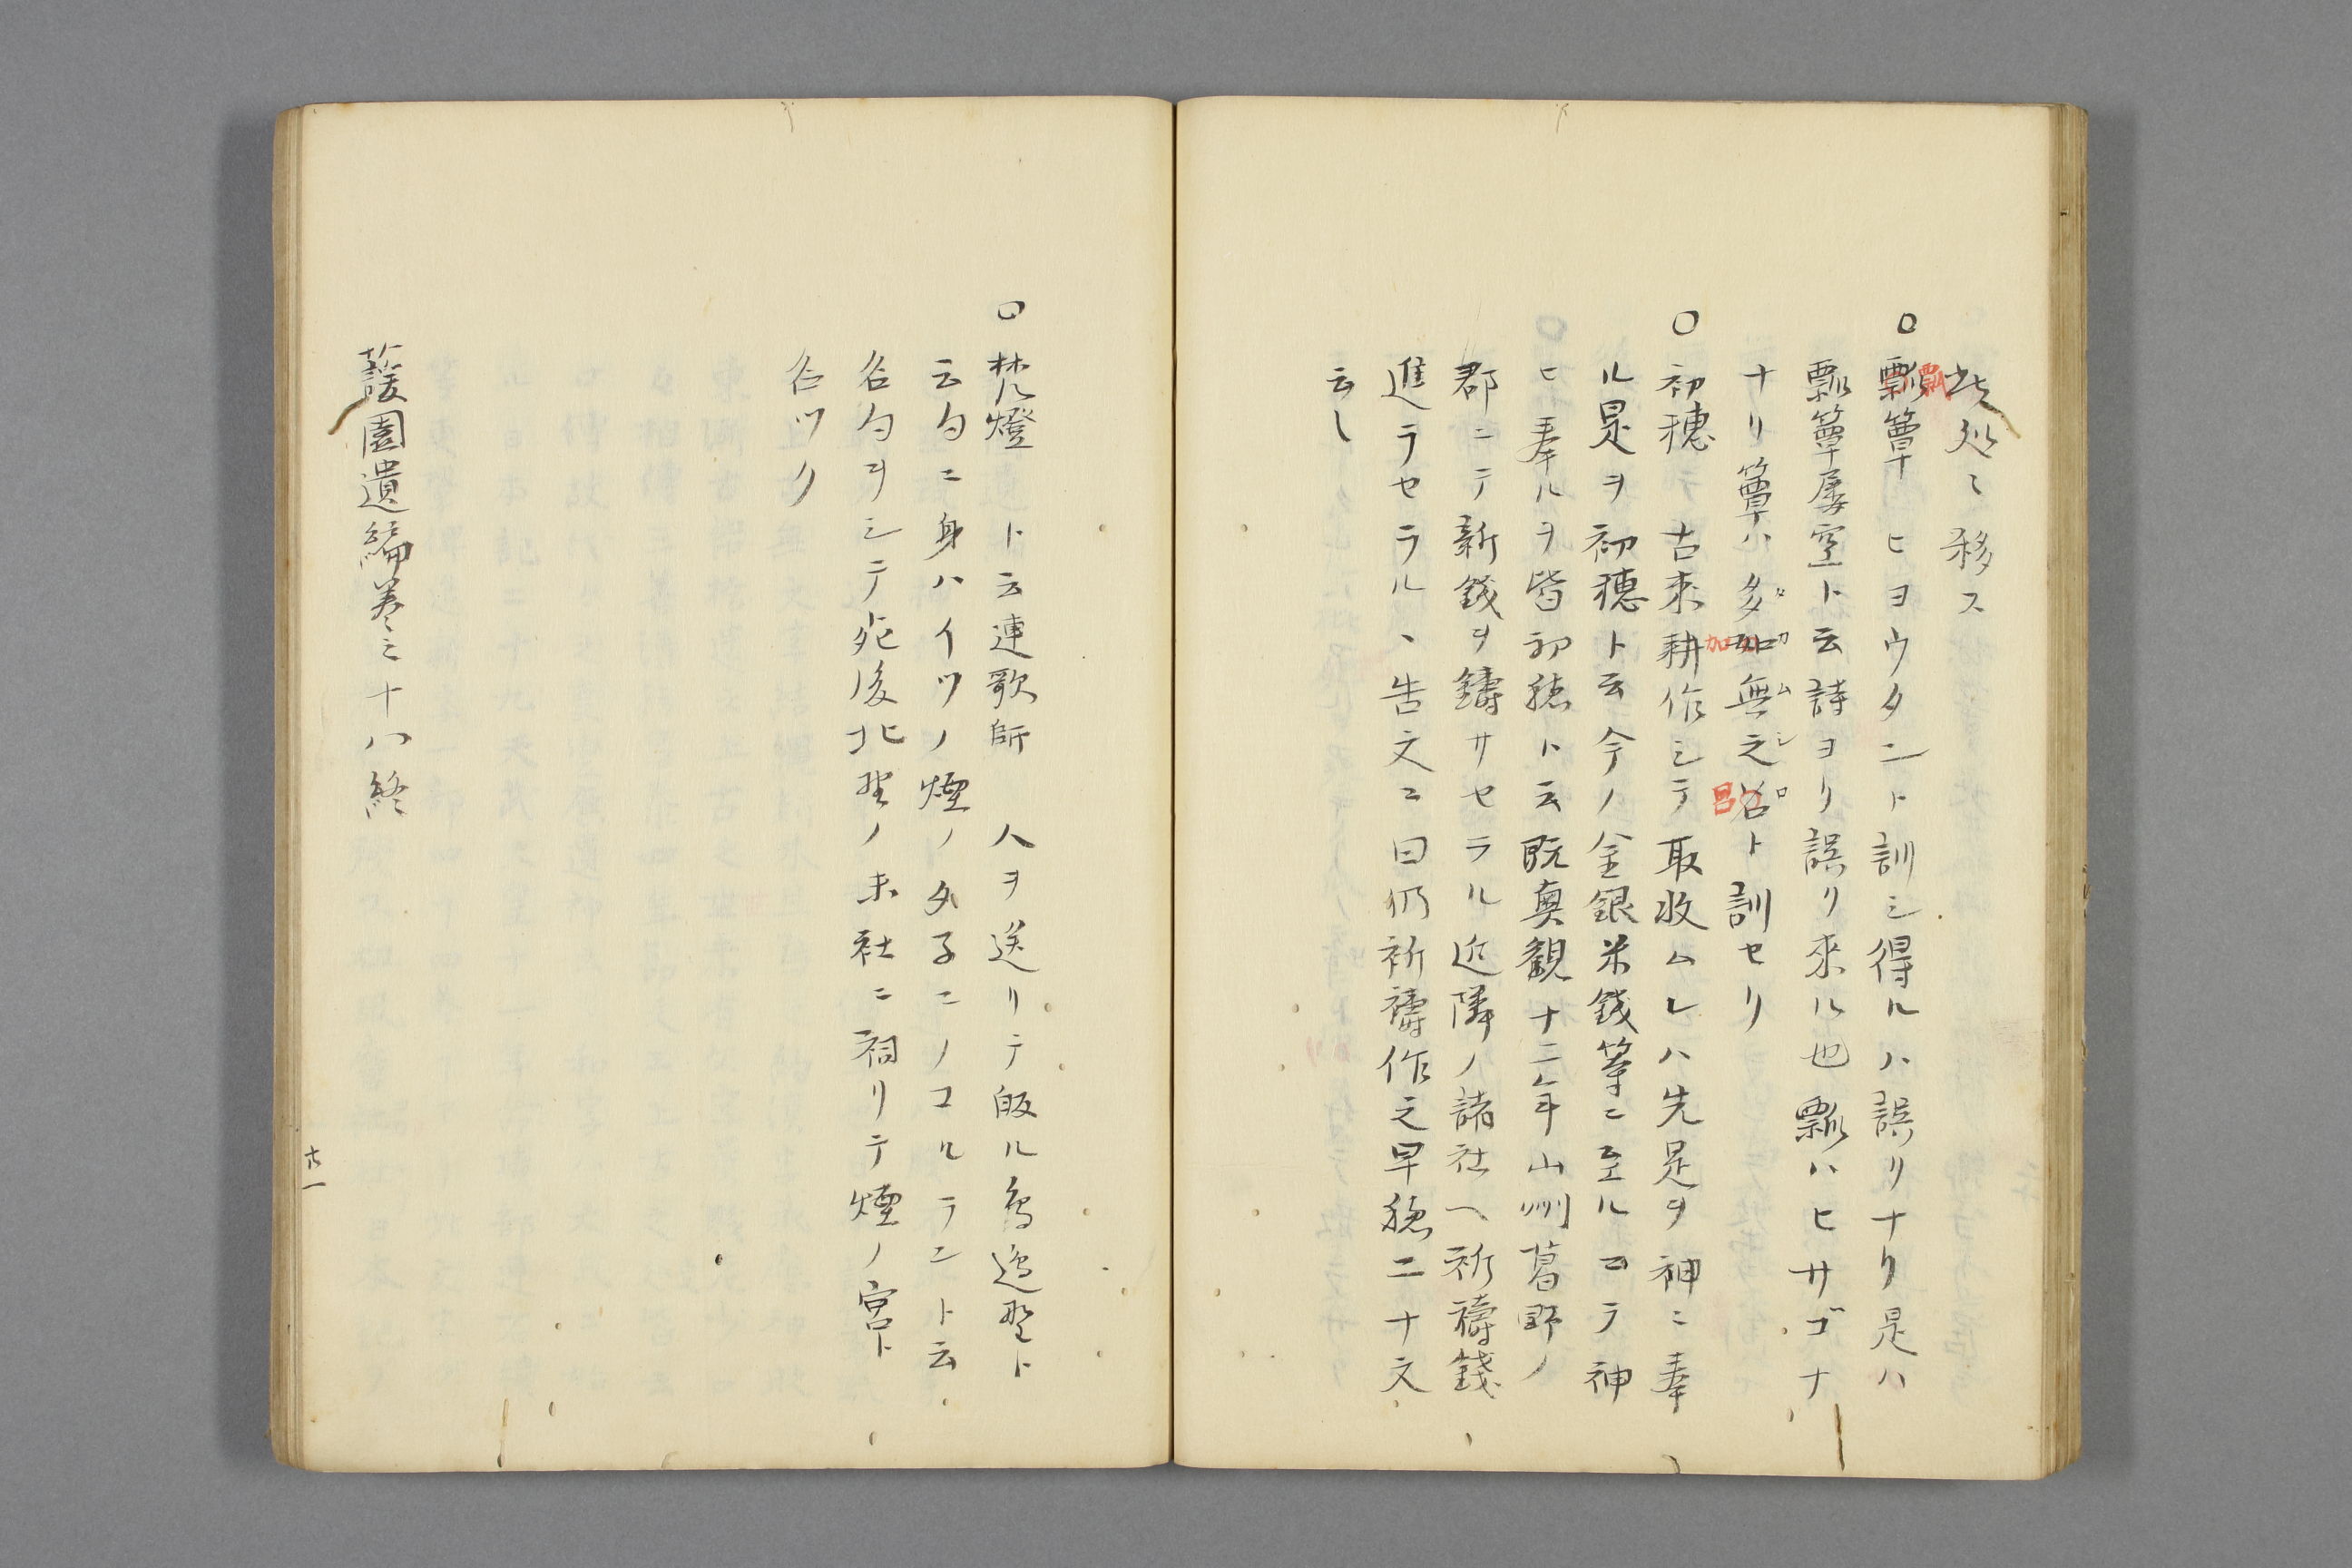 此処ニ移ス
○瓢簞ヒヨウタンント訓シ得ルハ誤リナリ是ハ
瓢簞屡空ト云詩ヨリ誤リ來ル也瓢ハヒサゴナ
ナリ簞ハ多加無之呂ト訓セリ
○初穂古来耕作シテ取收ムレハ先是ヲ神ニ奉
ル是ヲ初穂ト云今ノ金銀米錢等ニ至ルマテ神
ヒ奉ルヲ皆初穂ト云既眞観十二年山州葛野ノ
郡ニテ新錢ヲ鑄サセラル近隣ノ諸社ヘ祈禱錢
進ラセラルヽ告文ニ曰仍祈禱作之早穂二十文
云〻
○梵燈ト云連歌師人ヲ送リテ皈ル鳥邉野ト
云句ニ身ハイツノ煙ノタ子ニノコルラント云
名句ヲシテ死後北野ノ末社ニ祠リテ煙ノ宮ト
名ツク
蘐園遺編巻之十八終
廿一